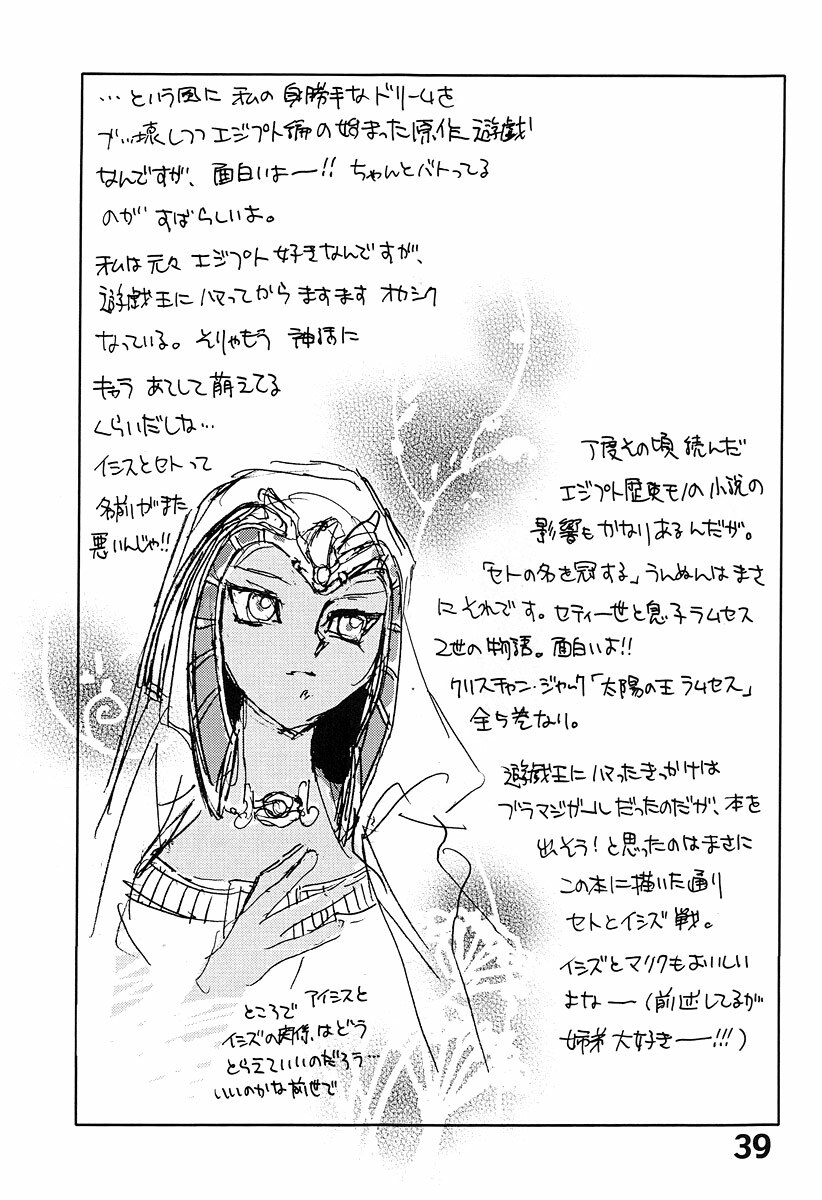 …という風に 私の身勝手なドリームを
ブッ壊しつつエジプト編の始まった原作遊戯
なんですが、面白いよー!! ちゃんとバトってる
のが すばらしいよ。
私は元々 エジプト好きなんですが、
遊戯王にハマってから ますます オカシク
なっている。そりゃもう 神話に
キョウ あてして萌えてる
くらいだしな…
イシスとセトって
名前がまた
悪いんじゃ!!
丁度その頃 読んだ
エジプト歴史モノの小説の
影響もかなりあるんだが。
「セトの名を冠する」うんぬんはまさ
にそれです。セティ一世と息子ラムセス
2世の物語。面白いよ!!
クリスチャン・ジャック「太陽の王 ラムセス」
全5巻なり。
遊戯王にハマったきっかけは
ブラマジガールだったのだが、本を
出そう!と思ったのはまさに
この本に描いた通り
セトとイシズ戦。
イシズとマリクもおいしい
よなー(前述してるが
姉弟 大好きー!!!)
ところで アイシスと
イシズの関係はどう
とらえていいのだろう…
いいのかな前世で
39